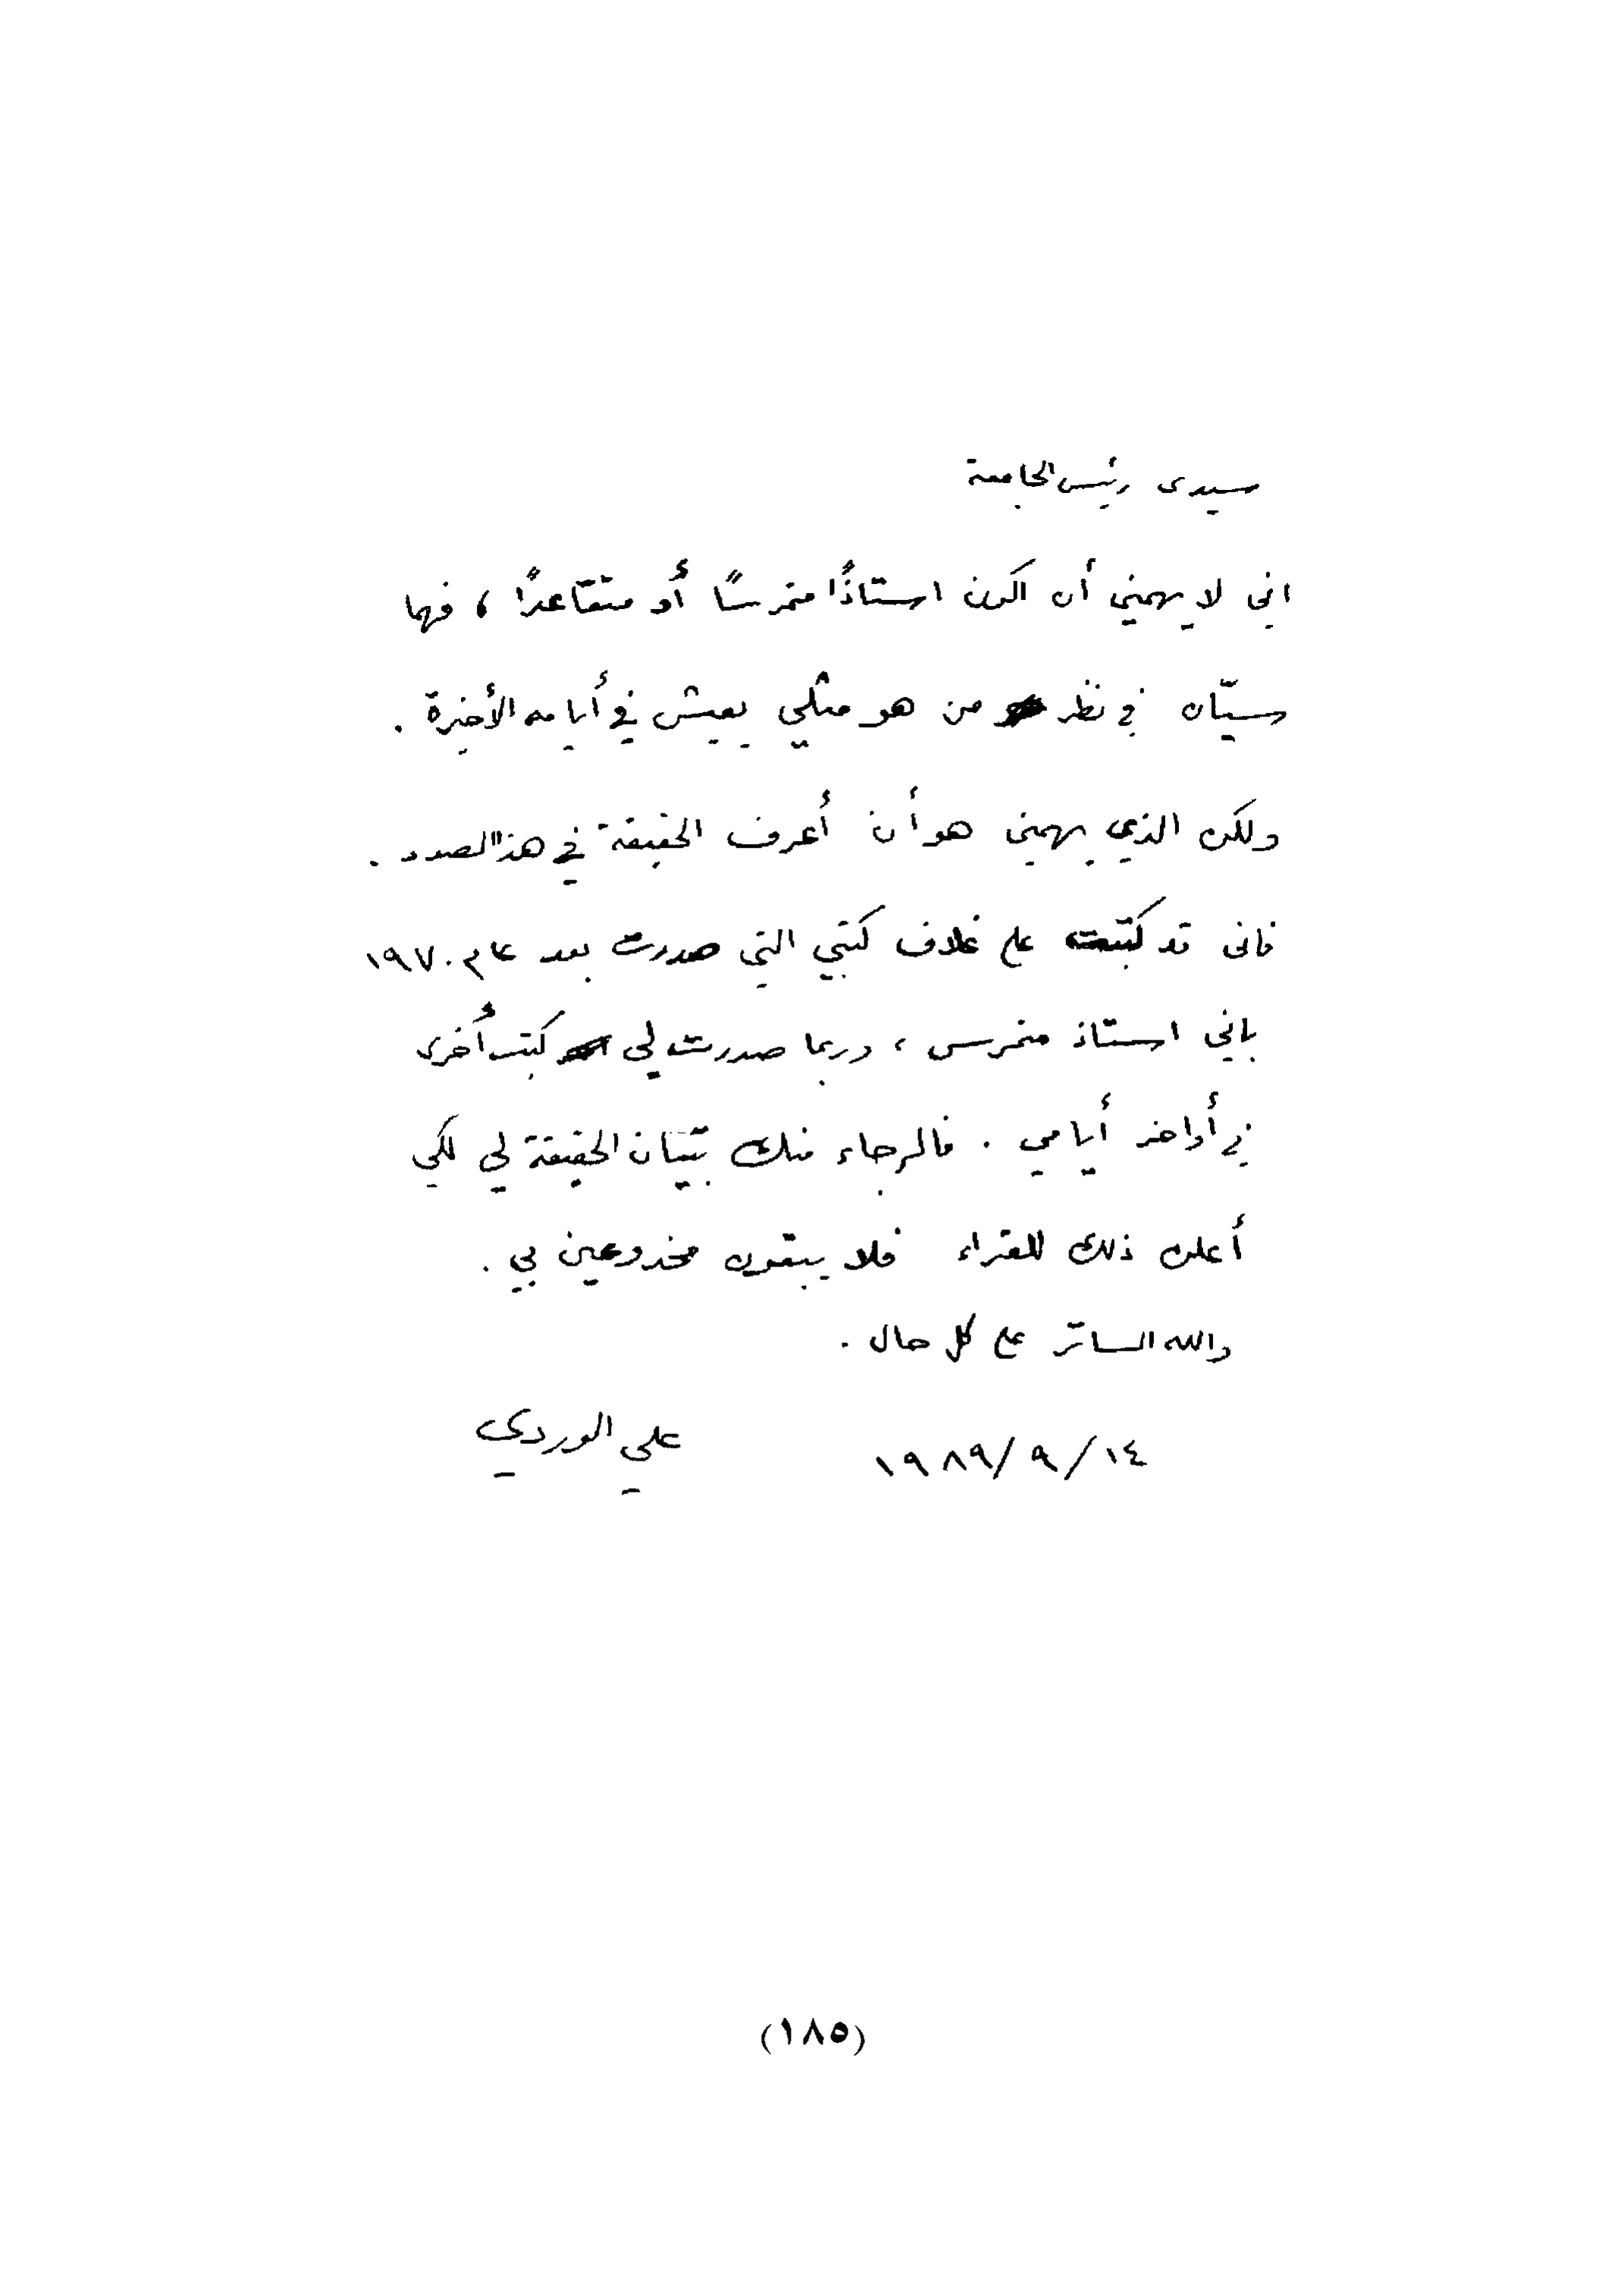 سيدى رئيس الجامعة
اني لا يهمني أن اكون استاذًا متمرسًا أو متقاعدًا ، فهما
سيّان في نظر من هو مثلي يعيش في أيامه الأخيرة .
ولكن الذي يهمني هو أن أعرف الحقيقة في هذا الصدد .
فانى قد كتبت على غلاف كتبي التي صدرت بعد عام ١٩٧٠
باني استاذ متمرس ، وربما صدرت لي كتب أخرى
في أواخر أيامي . فالرجاء منك تبيان الحقيقة لي لكي
أعلن ذلك للقراء فلا يبقون مخدوعين بي .
والله الساتر على كل حال .
علي الوردي
١٤/٩/١٩٨٩
(١٨٥)